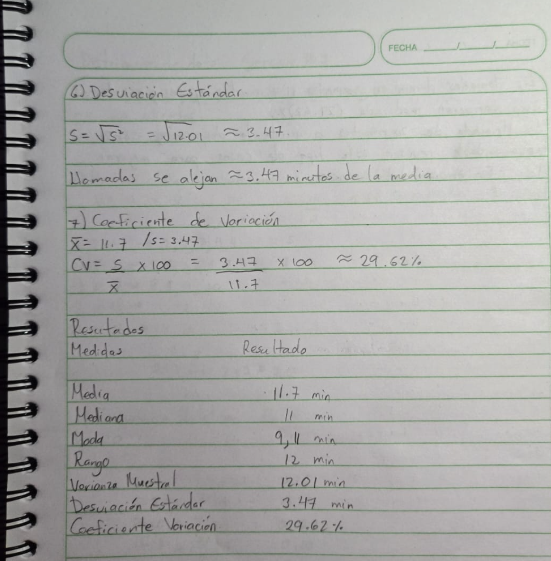 FECHA / /
6) Desviación Estándar
S = √S² = √12.01 ≈ 3.47
Llamadas se alejan ≈ 3.47 minutos de la media
7) Coeficiente de Variación
x̄ = 11.7 / s = 3.47
CV = S/x̄ × 100 = 3.47/11.7 × 100 ≈ 29.62%
Resultados
Medidas Resultado
Media 11.7 min
Mediana 11 min
Moda 9, 11 min
Rango 12 min
Varianza Muestral 12.01 min
Desviación Estándar 3.47 min
Coeficiente Variación 29.62%